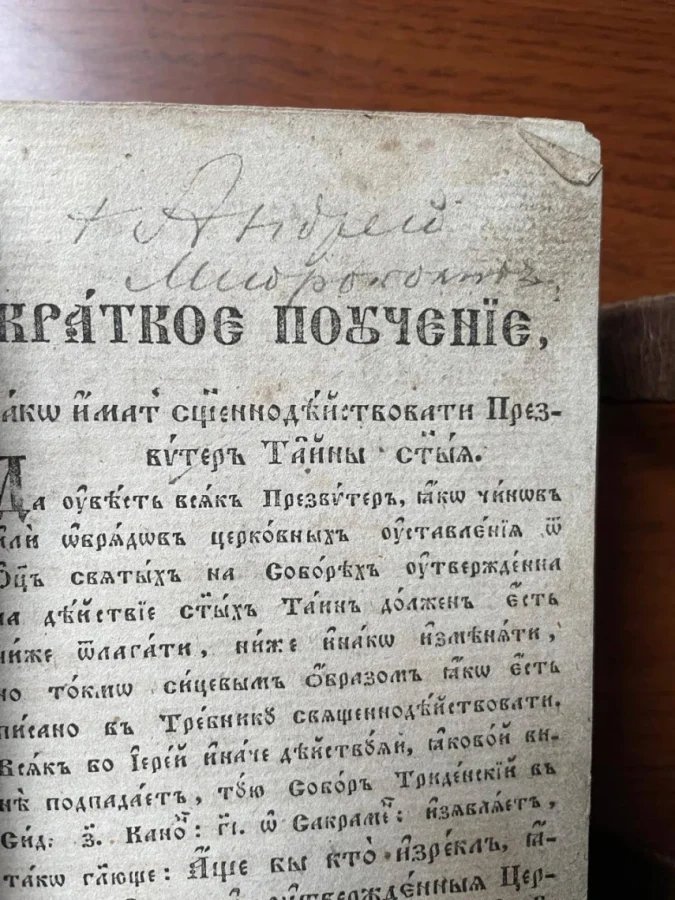 + Андрей
КРА́ТКОЕ ПОꙊЧЕНЇЕ,
ꙗ́кѡ и҆́мат̾ сщ҃еннодѣ́йствовати През-
вѵ́теръ Та̑йны ст҃ы́ѧ.
Да ѹ҆вѣ́сть всѧ́къ Презвѵ́теръ, ꙗ҆́кѡ чи́новъ
и҆лѝ ѡ҆брѧ́дѡвъ церко́вныхъ ѹ҆ставле́нїѧ ѿ
Ѻ҆ц҃ъ свѧты́хъ на Собо́рѣхъ ѹ҆твержде́нна
на дѣ́йствїе ст҃ы́хъ Та́инъ до́лженъ є҆́сть
ни́же ѿлага́ти, ни́же и҆на́кѡ и҆змѣнѧ́ти,
но то́кмѡ си́цевымъ ѻ҆́бразомъ ꙗ҆́кѡ є҆́сть
писано въ Тре́бникꙋ свѧщеннодѣ́йствовати.
Всѧ́къ бо І҆ере́й и҆на́че дѣ́йствꙋѧй, ꙗ҆ково́й ви-
нѣ̀ подпада́етъ, то́ю Собо́ръ Триде́нскїй въ
Сѵ́д: з҃. Кано́н: г҃і. ѡ҆ Сакраме́: и҆з̾ѧвлѧ́етъ,
та́кѡ гл҃юще: А҆́ще бы кто̀ и҆зре́клъ, ꙗ҆́-
ѹ҆твержде́нныѧ Цер-